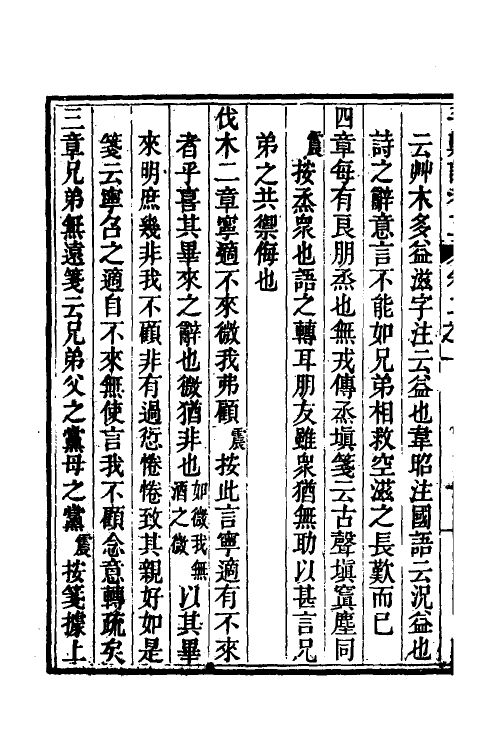 云艸木多益滋字注云益也韋昭注國語云況益也
詩之辭意言不能如兄弟相救空滋之長歎而已
四章每有良朋烝也無戎傳烝塡箋云古聲塡窴塵同
震按烝衆也語之轉耳朋友雖衆猶無助以甚言兄
弟之共禦侮也
伐木二章寧適不來微我弗顧震按此言寧適有不來
者乎喜其畢來之辭也微猶非也如微我無酒之微以其畢
來明庶幾非我不顧非有過愆惓惓致其親好如是
箋云寧召之適自不來無使言我不顧念意轉疏矣
三章兄弟無遠箋云兄弟父之黨母之黨震按箋據上